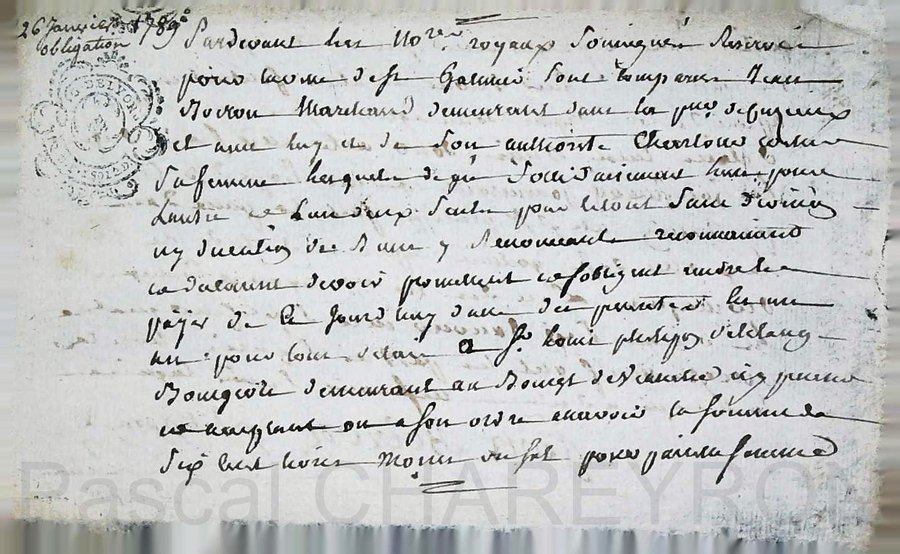 26 Janvier 1789
obligation
Pardevant les No.res royaux soussignés Reservé
pour la comune de St Galmier sont comparus Jean
Marchand demeurant dans la p.sse de
et avec luy et de son authorité Charlotte
sa femme lesquels de gré solidairement l'un pour
l'autre et l'un deux seul pour le tout sans division
ny discution de Biens y Renonceants reconnaissent
et devoir promettent et s'obligent rendre et
payer de ce jourd'huy date des presentes en un
an pour tout delai a Sr Louis philipon
Bourgeois demeurant au Bourg de icy present
et acceptant ou a son ordre a savoir la somme de
Six cent livres Moins un sol pour pareille somme
Pascal CHAREYRON